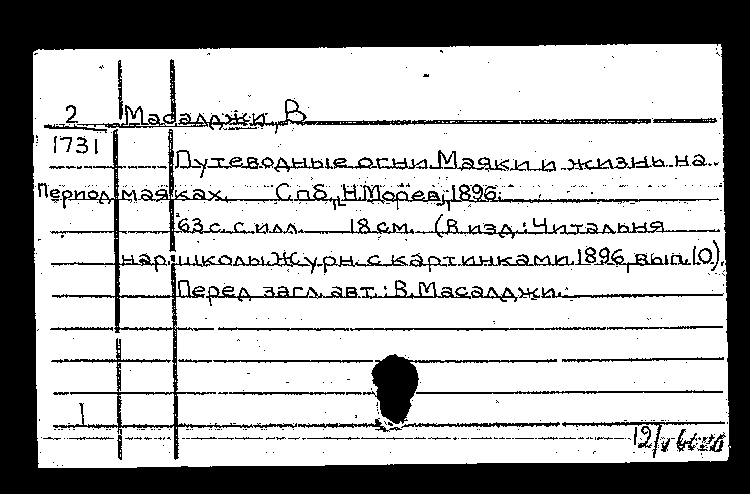 2 Масалджи, В
1731
Путеводные огни. Маяки и жизнь на
Период маяках. Спб., Н. Морев, 1896.
63 с. с илл. 18 см. (В изд.: Читальня
нар. школы. Журн. с картинками. 1896, вып. 10).
Перед загл. авт.: В. Масалджи.
1
12/V